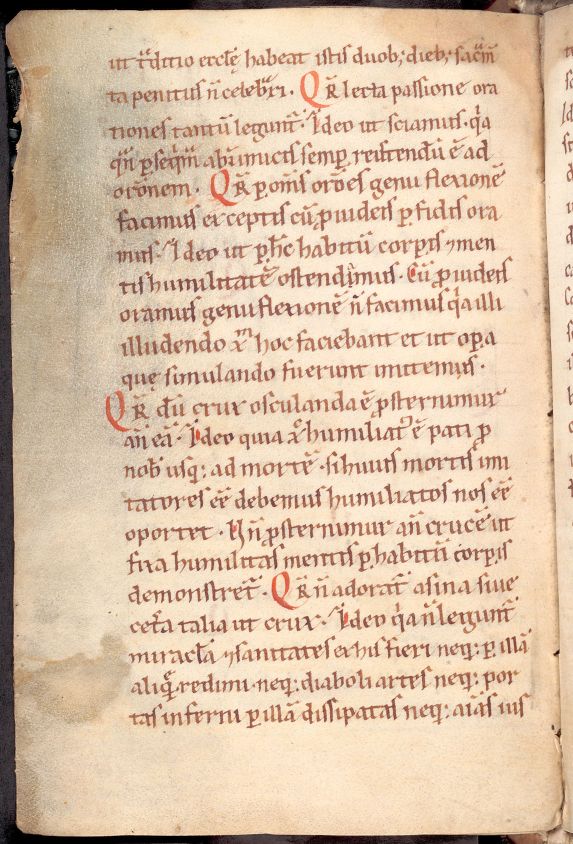 ut t̄ditio eccl̄ę habeat istis duob; dieb; sac̄m
ta penitus n̄ celebͬri. QR̄ lecta passione ora
tiones tantū legunt᷑. Ideo ut sciamus. qͥa
qn̄ ꝑseqͥm̄ ab inimicis semꝑ recurrendū ē ad
orōnem. QR̄ ꝑ om̄s orōēs genu flexionē
facimus exceptis cū ꝓ iudeis ꝑfidis ora
mus. Ideo ut ꝑ h̄c habitū corꝑis ⁊ men
tis humilitatē ostendamus. Cū ꝓ iudeis
oramus genu flexionē n̄ facimus qͥa illi
illudendo xp̄m hoc faciebant et ut oꝑa
quę simulando fuerunt uitemus.
QR̄ dū crux osculanda ē ꝓsternimur
an̄ eā. Ideo quia xp̄s humiliat᷒ ē pati ꝓ
nob᷒ usq; ad mortē. si huius mortis imi
tatores eē debemus humiliatos nos eē
oportet. N̄ n̄ ꝓsternimur an̄ crucē ut
fixa humilitas mentis ꝑ habitū corꝑis
demonstret᷑. QR̄ n̄ adorat᷑ asina siue
cet̄a talia ut crux. Ideo qͥa n̄ legunt᷑
miracl̄a ⁊ sanitates ex his fieri neq; ꝑ illā
aliqͥs redimi. neq; diaboli artes neq; por
tas inferni ꝑ illā dissipatas neq; aīas ius